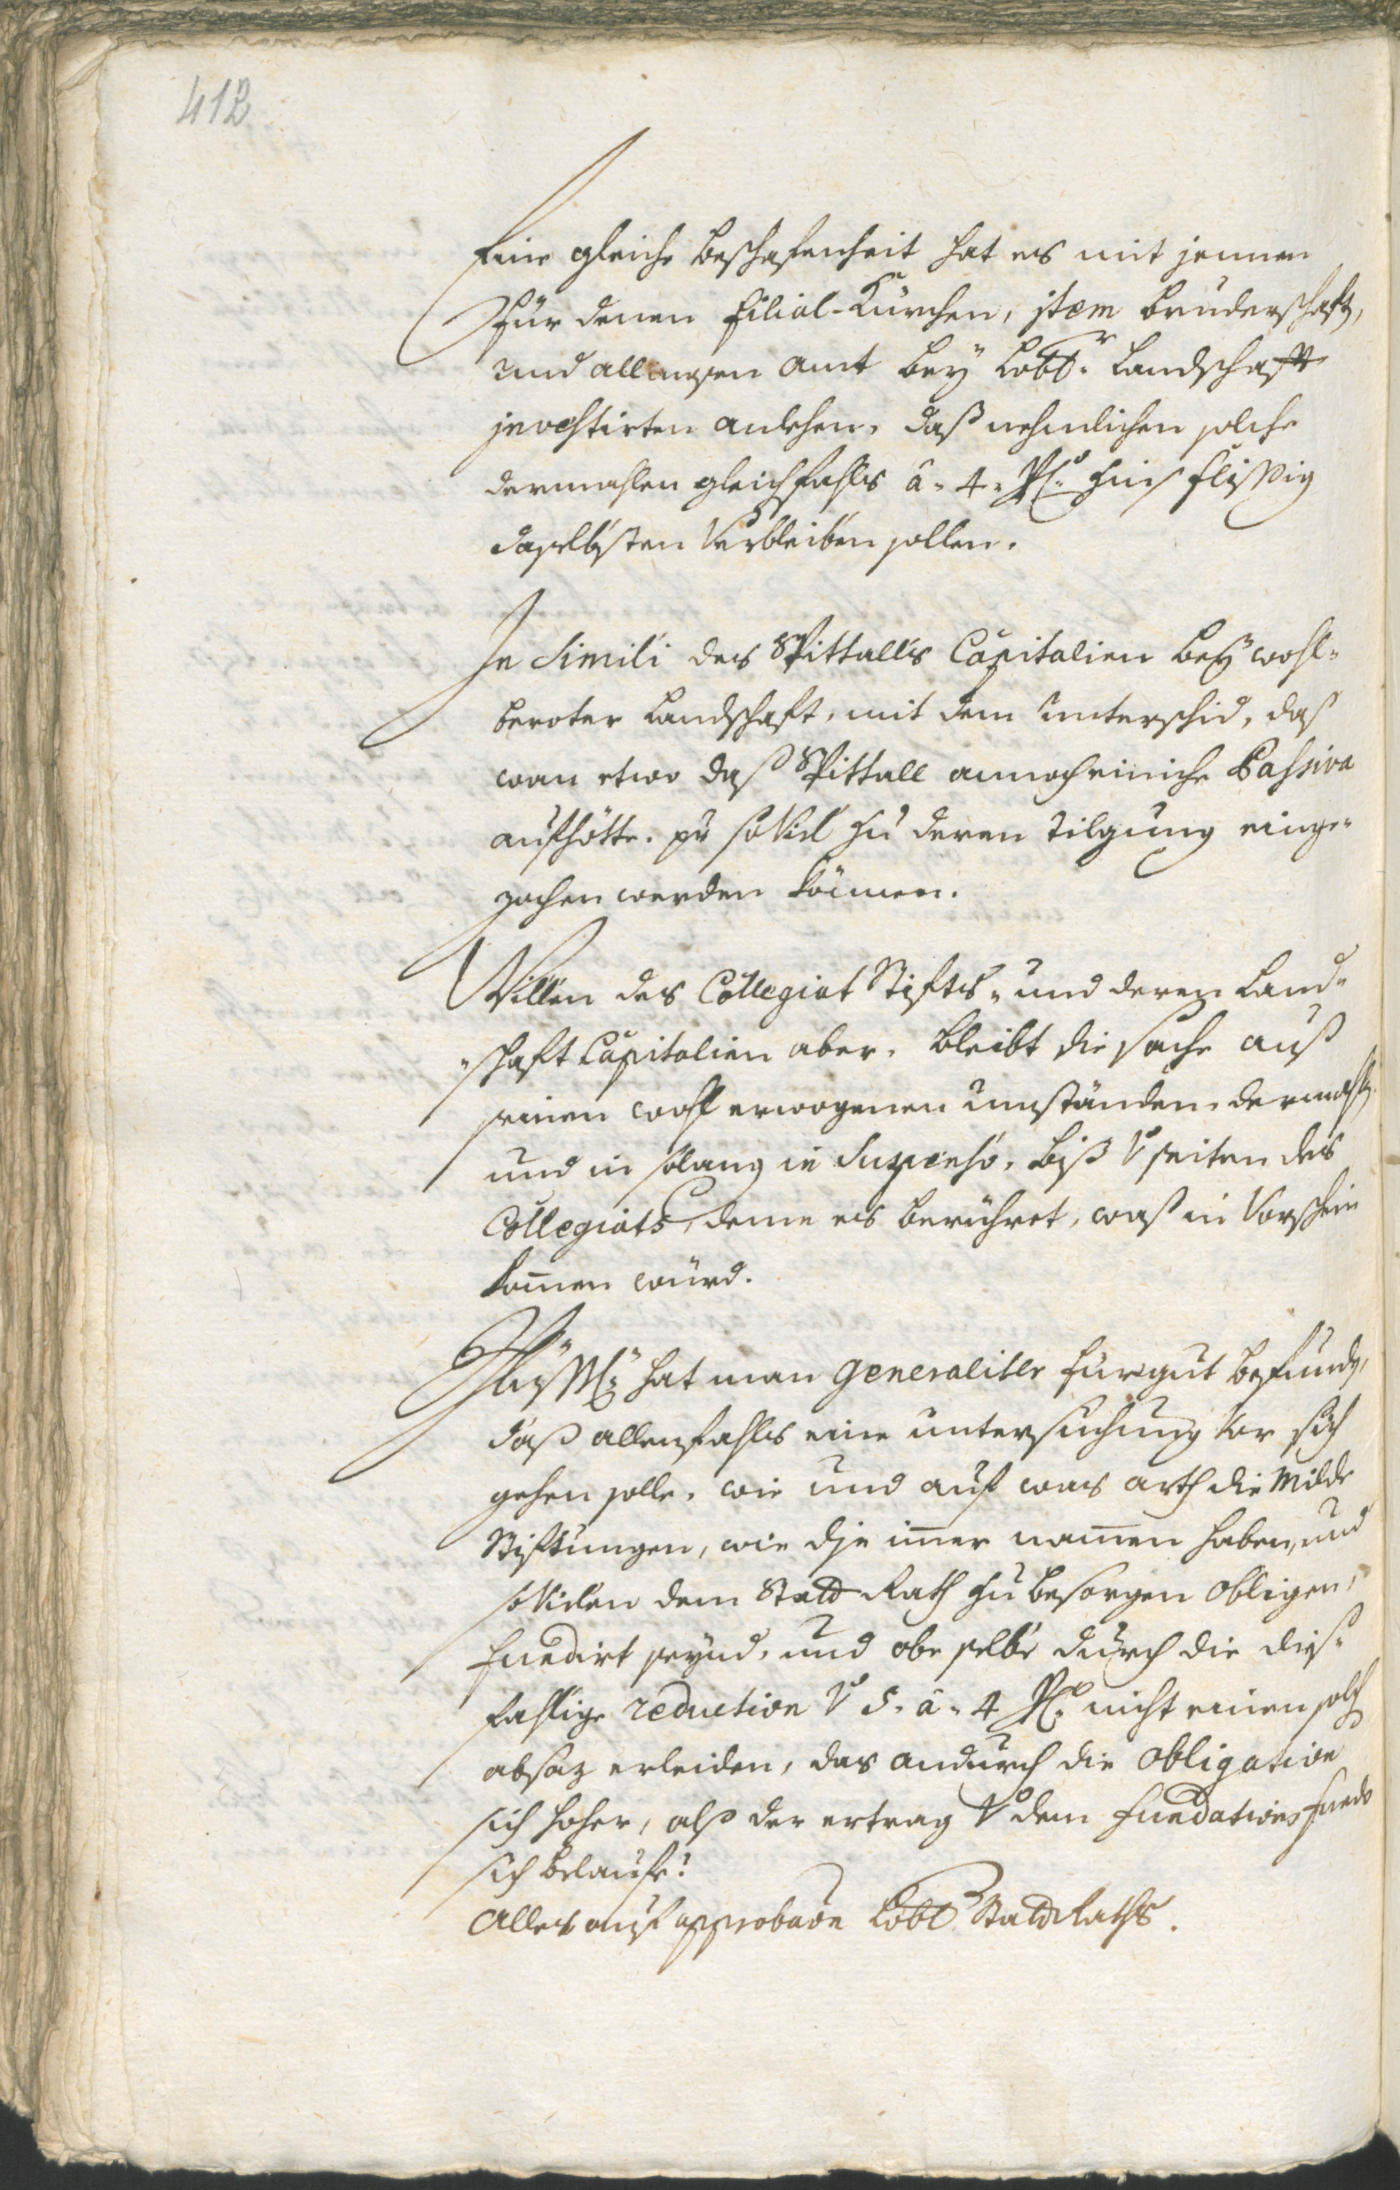 412
Eine gleiche beschafenheit hat es mit jennen
für denen Filial-Kürchen, jtem bruderschaft,
und allmosen amt bey Löbl.r Landschaft
jnvestirten anlehen, daß nehmlichen solche
dermahlen gleichfahls â 4 Pc.to hinflissig
daselbsten verbleiben sollen.
In Simili des Spittalls Capitalien bey wohl-
beroter Landschaft, mit dem unterschid, daß
wan etwo daß Spittall annoch einiche Passiva
aufhötte, so vicl zu deren tilgung einge-
zochen werden können.
Willen des Collegiat Stifts, und deren Land-
schaft Capitalien aber, bleibt die sache auß
seinen wohl erwogenen umständen dermahl.
und in solang in Suspenso, biß v seiten des
Collegiats, deme es berühret, waß in Vorschein
komen würd.
hat man generaliter für gut befund,
daß allenfahls eine untersuchung vor sich
gehen solle, wie und auf was arth die Milde
Stiftungen, wie die imer namen haben, und
so vielen dem Statt Rath zu besorgen obligen,
fundirt seynd, und obe selbe durch die dis-
fahlige reduction v 5. â 4 Pc.to nicht einen solch
absaz erleiden, das andurch die obligation
sich hoher, alß der ertrag v dem Fundations fundo
sich belaufe?
Alles auf approbaōn Löbl. Statt Raths.